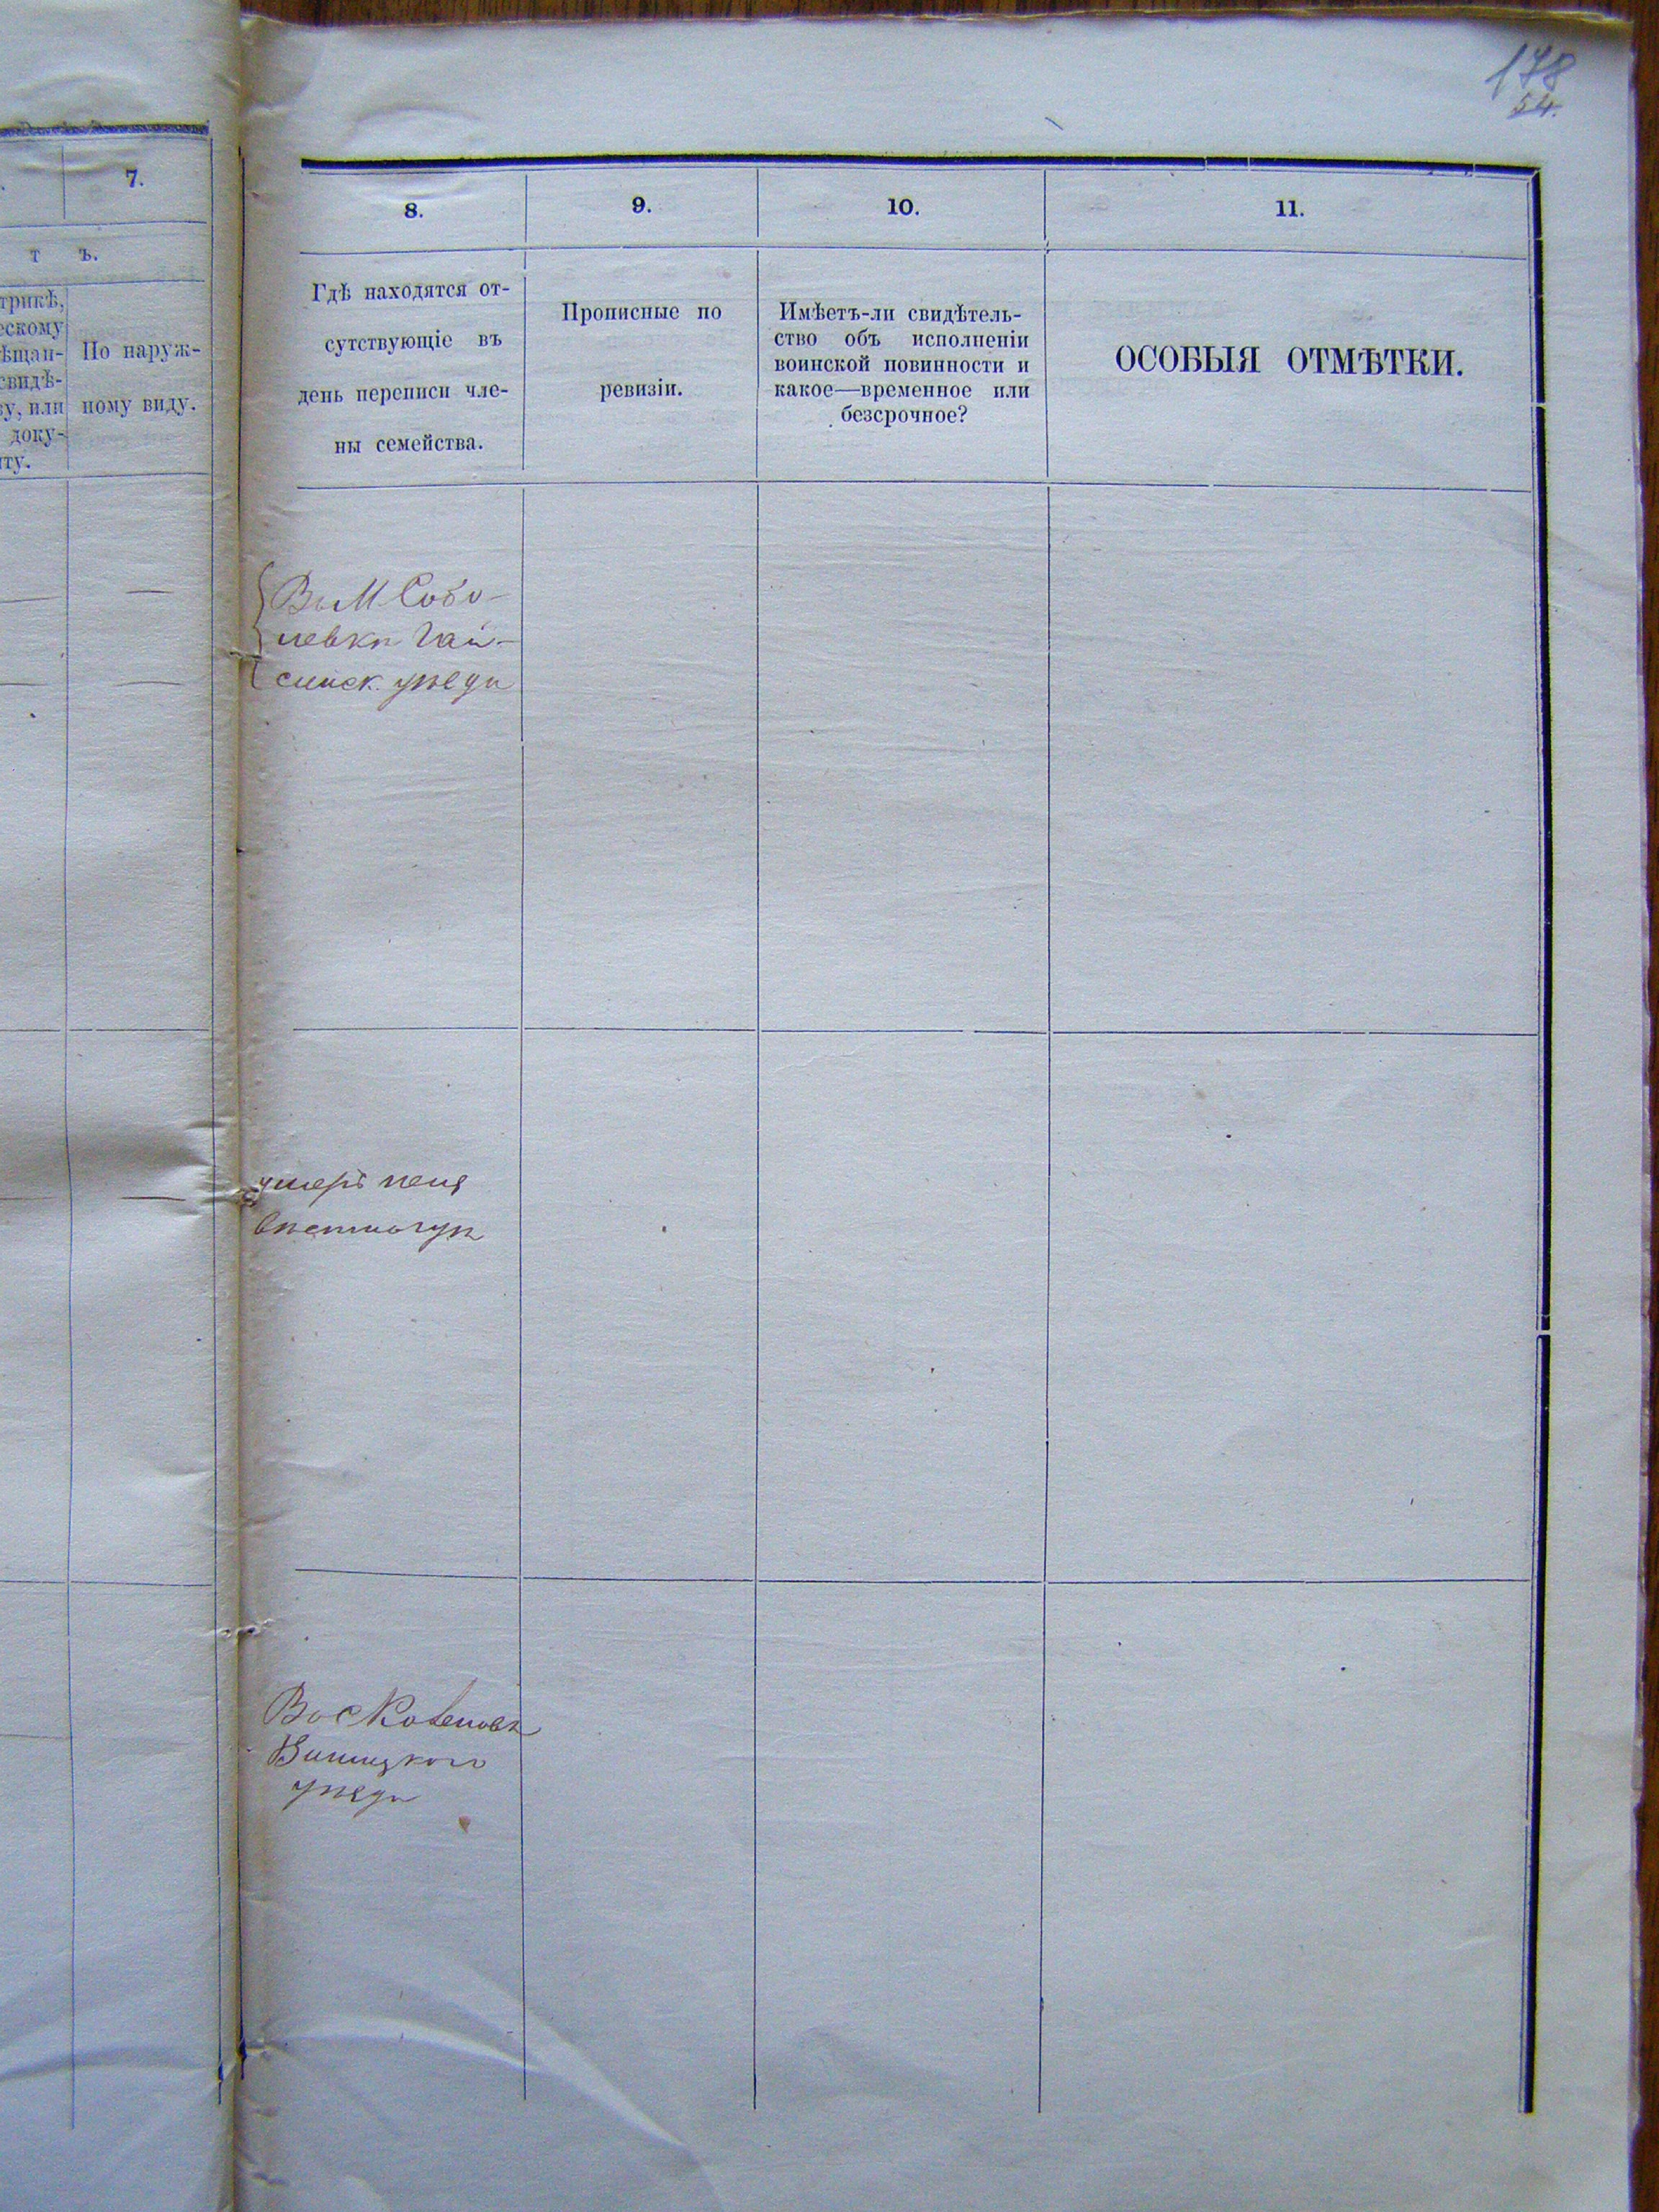 178
54.
7.
т ъ.
трикѣ,
ескому
ѣщан-
свидѣ-
ву, или
доку-
нту.
По наруж-
ному виду.
8.
9.
10.
11.
Гдѣ находятся от-
сутствующіе въ
день переписи чле-
ны семейства.
Прописные по
ревизіи.
Имѣетъ-ли свидѣтель-
ство объ исполненіи
воинской повинности и
какое—временное или
безсрочное?
ОСОБЫЯ ОТМѢТКИ.
Въ М. Собо-
левкѣ Гай-
синск. уѣзда
умеръ
Вос
Виницкого
уѣзда